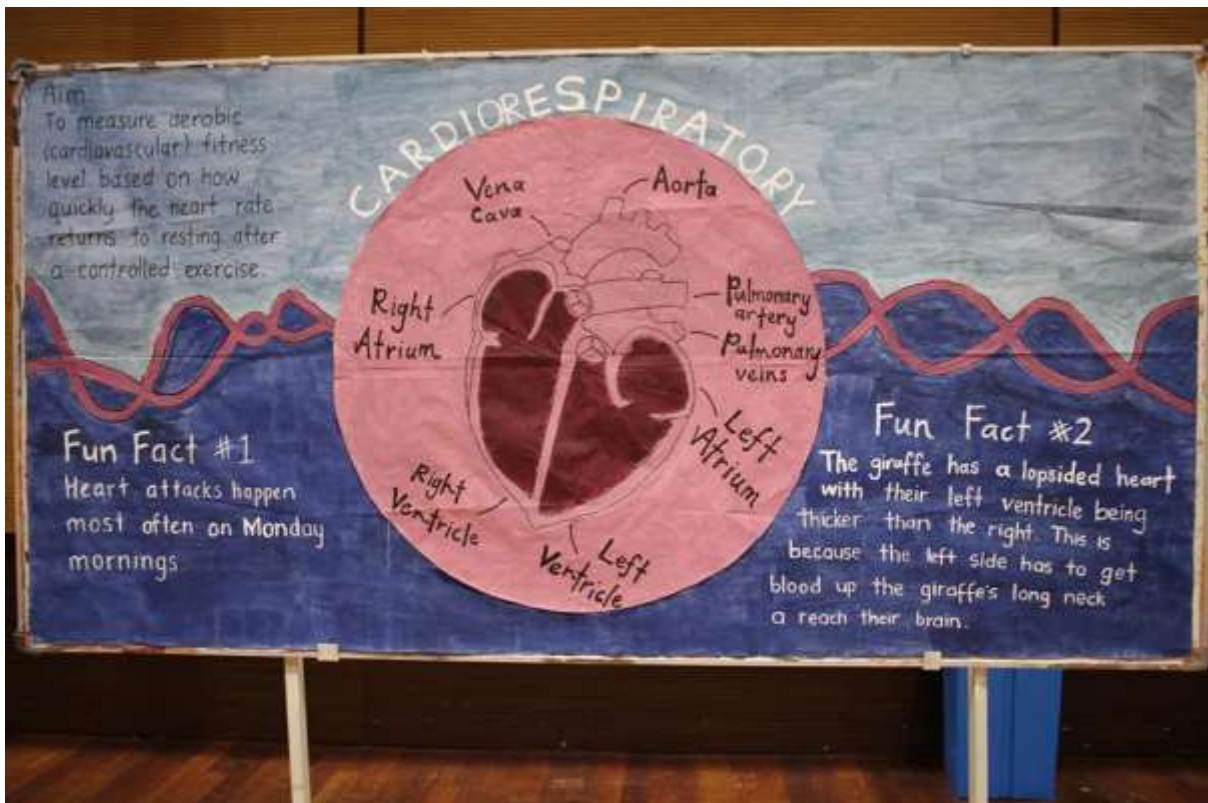 Aim
To measure aerobic
(cardiovascular) fitness
level based on how
quickly the heart rate
returns to resting after
a controlled exercise.
CARDIORESPIRATORY
Vena
Cava
Aorta
Right
Atrium
Pulmonary
artery
Pulmonary
veins
Left
Atrium
Right
Ventricle
Left
Ventricle
Fun Fact #1
Heart attacks happen
most often on Monday
mornings
Fun Fact #2
The giraffe has a lopsided heart
with their left ventricle being
thicker than the right. This is
because the left side has to get
blood up the giraffe's long neck
a reach their brain.